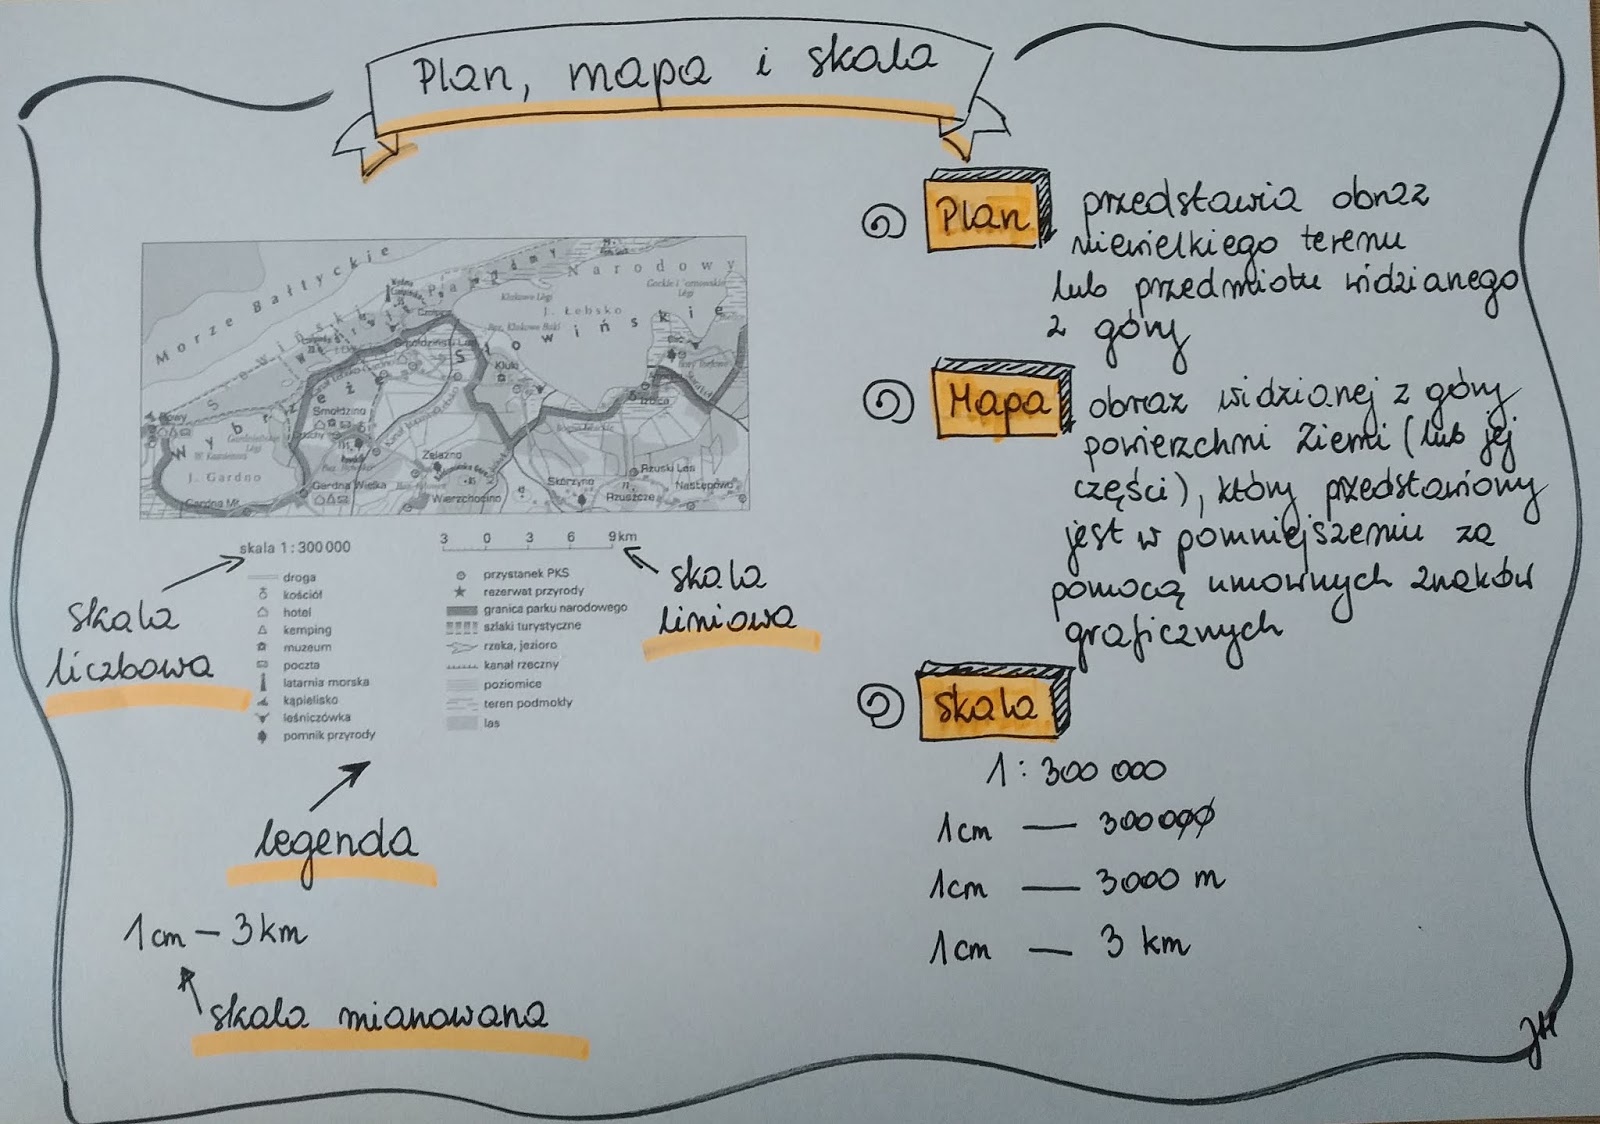 Plan, mapa i skala
Plan
przedstawia obraz
niewielkiego terenu
lub przedmiotu widzianego
z góry
Mapa
obraz widzianej z góry
powierzchni Ziemi (lub jej
części), który przedstawiony
jest w pomniejszeniu za
pomocą umownych znaków
graficznych
Skala
1 : 300 000
1cm — 300000
1cm — 3000 m
1cm — 3 km
Morze Bałtyckie
Narodowy
J. Łebsko
Słowiński
Wybrzeże
Smołdzino
Kluki
Izbica
J. Gardno
Gardna Wielka
Żelazno
Wierzchocino
Skórzyno
Rzuski Las
Rzuszcze
skala 1 : 300 000
3 0 3 6 9 km
droga
kościół
hotel
kemping
muzeum
poczta
latarnia morska
kąpielisko
leśniczówka
pomnik przyrody
przystanek PKS
rezerwat przyrody
granica parku narodowego
szlaki turystyczne
rzeka, jezioro
kanał rzeczny
poziomice
teren podmokły
las
skala
liczbowa
skala
liniowa
legenda
1cm — 3 km
skala mianowana